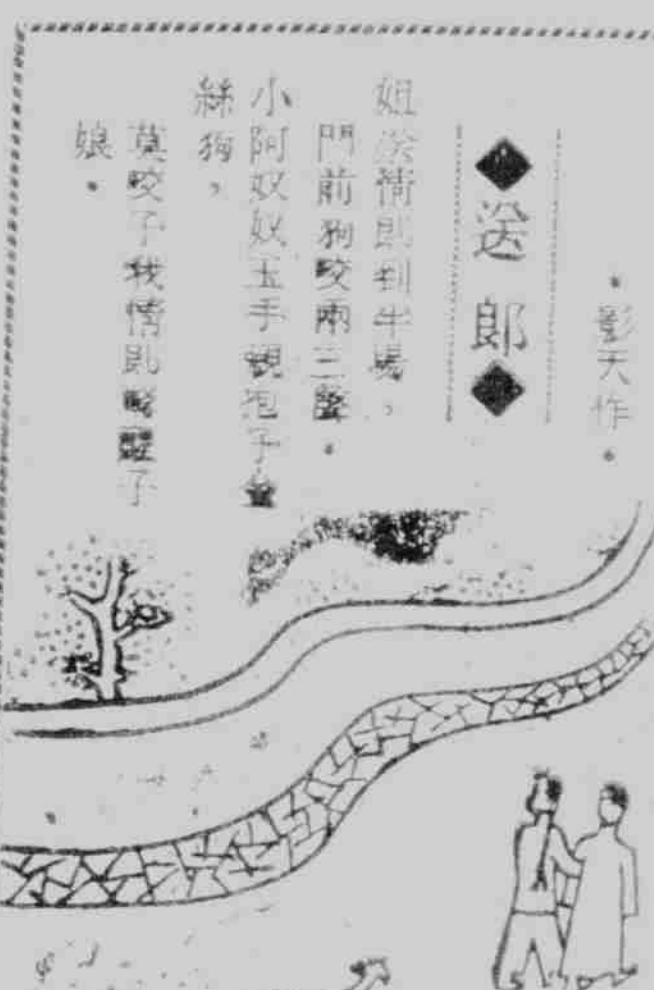 •影天作•
◆送郎◆
姐送情郎到半場，
門前狗咬兩三聲。
小阿奴奴玉手親抱子金
絲狗，
莫咬子我情郎咬醒子
娘。